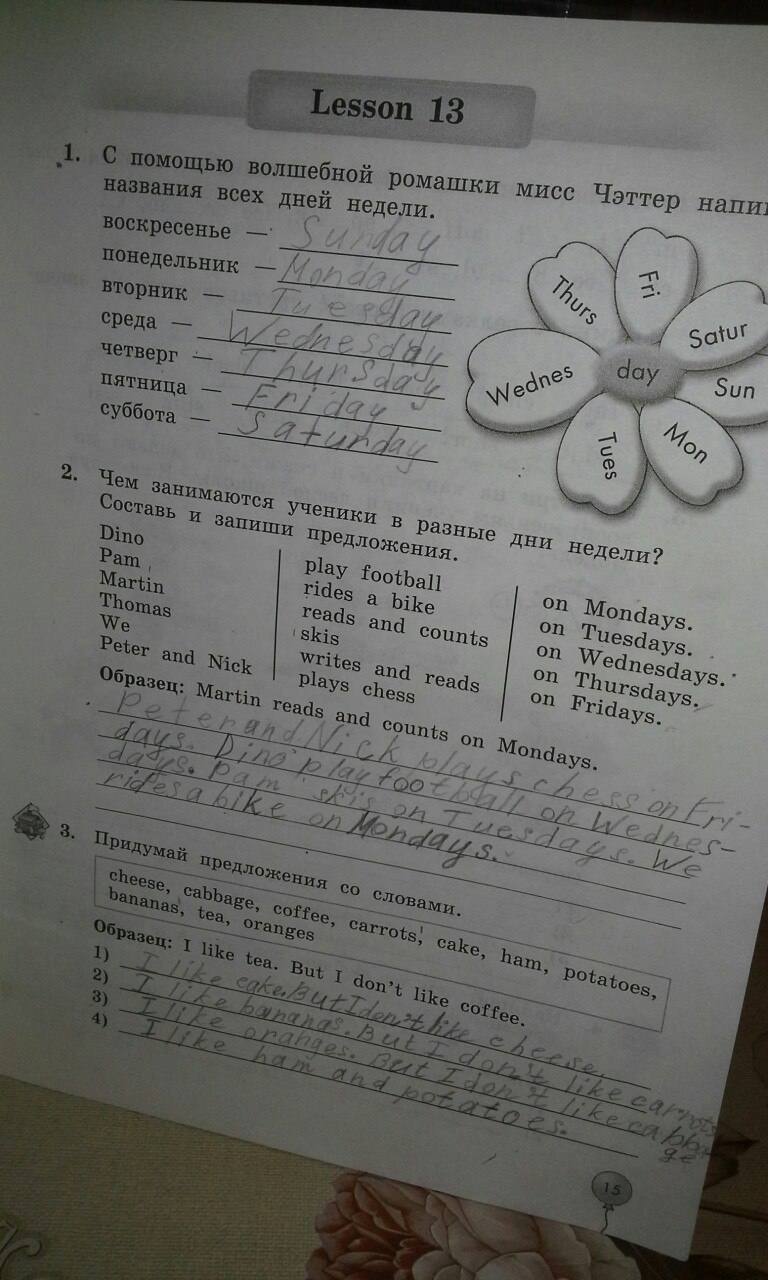 Lesson 13
1. С помощью волшебной ромашки мисс Чэттер
названия всех дней недели.
воскресенье — Sunday
понедельник — Monday
вторник — Tuesday
среда — Wednesday
четверг — Thursday
пятница — Friday
суббота — Saturday
Thurs
Fri
Satur
Wednes
day
Sun
Tues
Mon
2. Чем занимаются ученики в разные дни недели?
Составь и запиши предложения.
Dino
Pam
Martin
Thomas
We
Peter and Nick
play football
rides a bike
reads and counts
skis
writes and reads
plays chess
on Mondays.
on Tuesdays.
on Wednesdays.
on Thursdays.
on Fridays.
Образец: Martin reads and counts on Mondays.
Peter and Nick plays chess on Fri-
days. Dino play football on Wednes-
days. Pam skis on Tuesdays. We
rides a bike on Mondays.
3. Придумай предложения со словами.
cheese, cabbage, coffee, carrots, cake, ham, potatoes,
bananas, tea, oranges
Образец: I like tea. But I don't like coffee.
1) I like cake. But I don't like cheese.
2) I like bananas. But I don't like carrots
3) I like oranges. But I don't like cabba
ge
4) I like ham and potatoes.
15